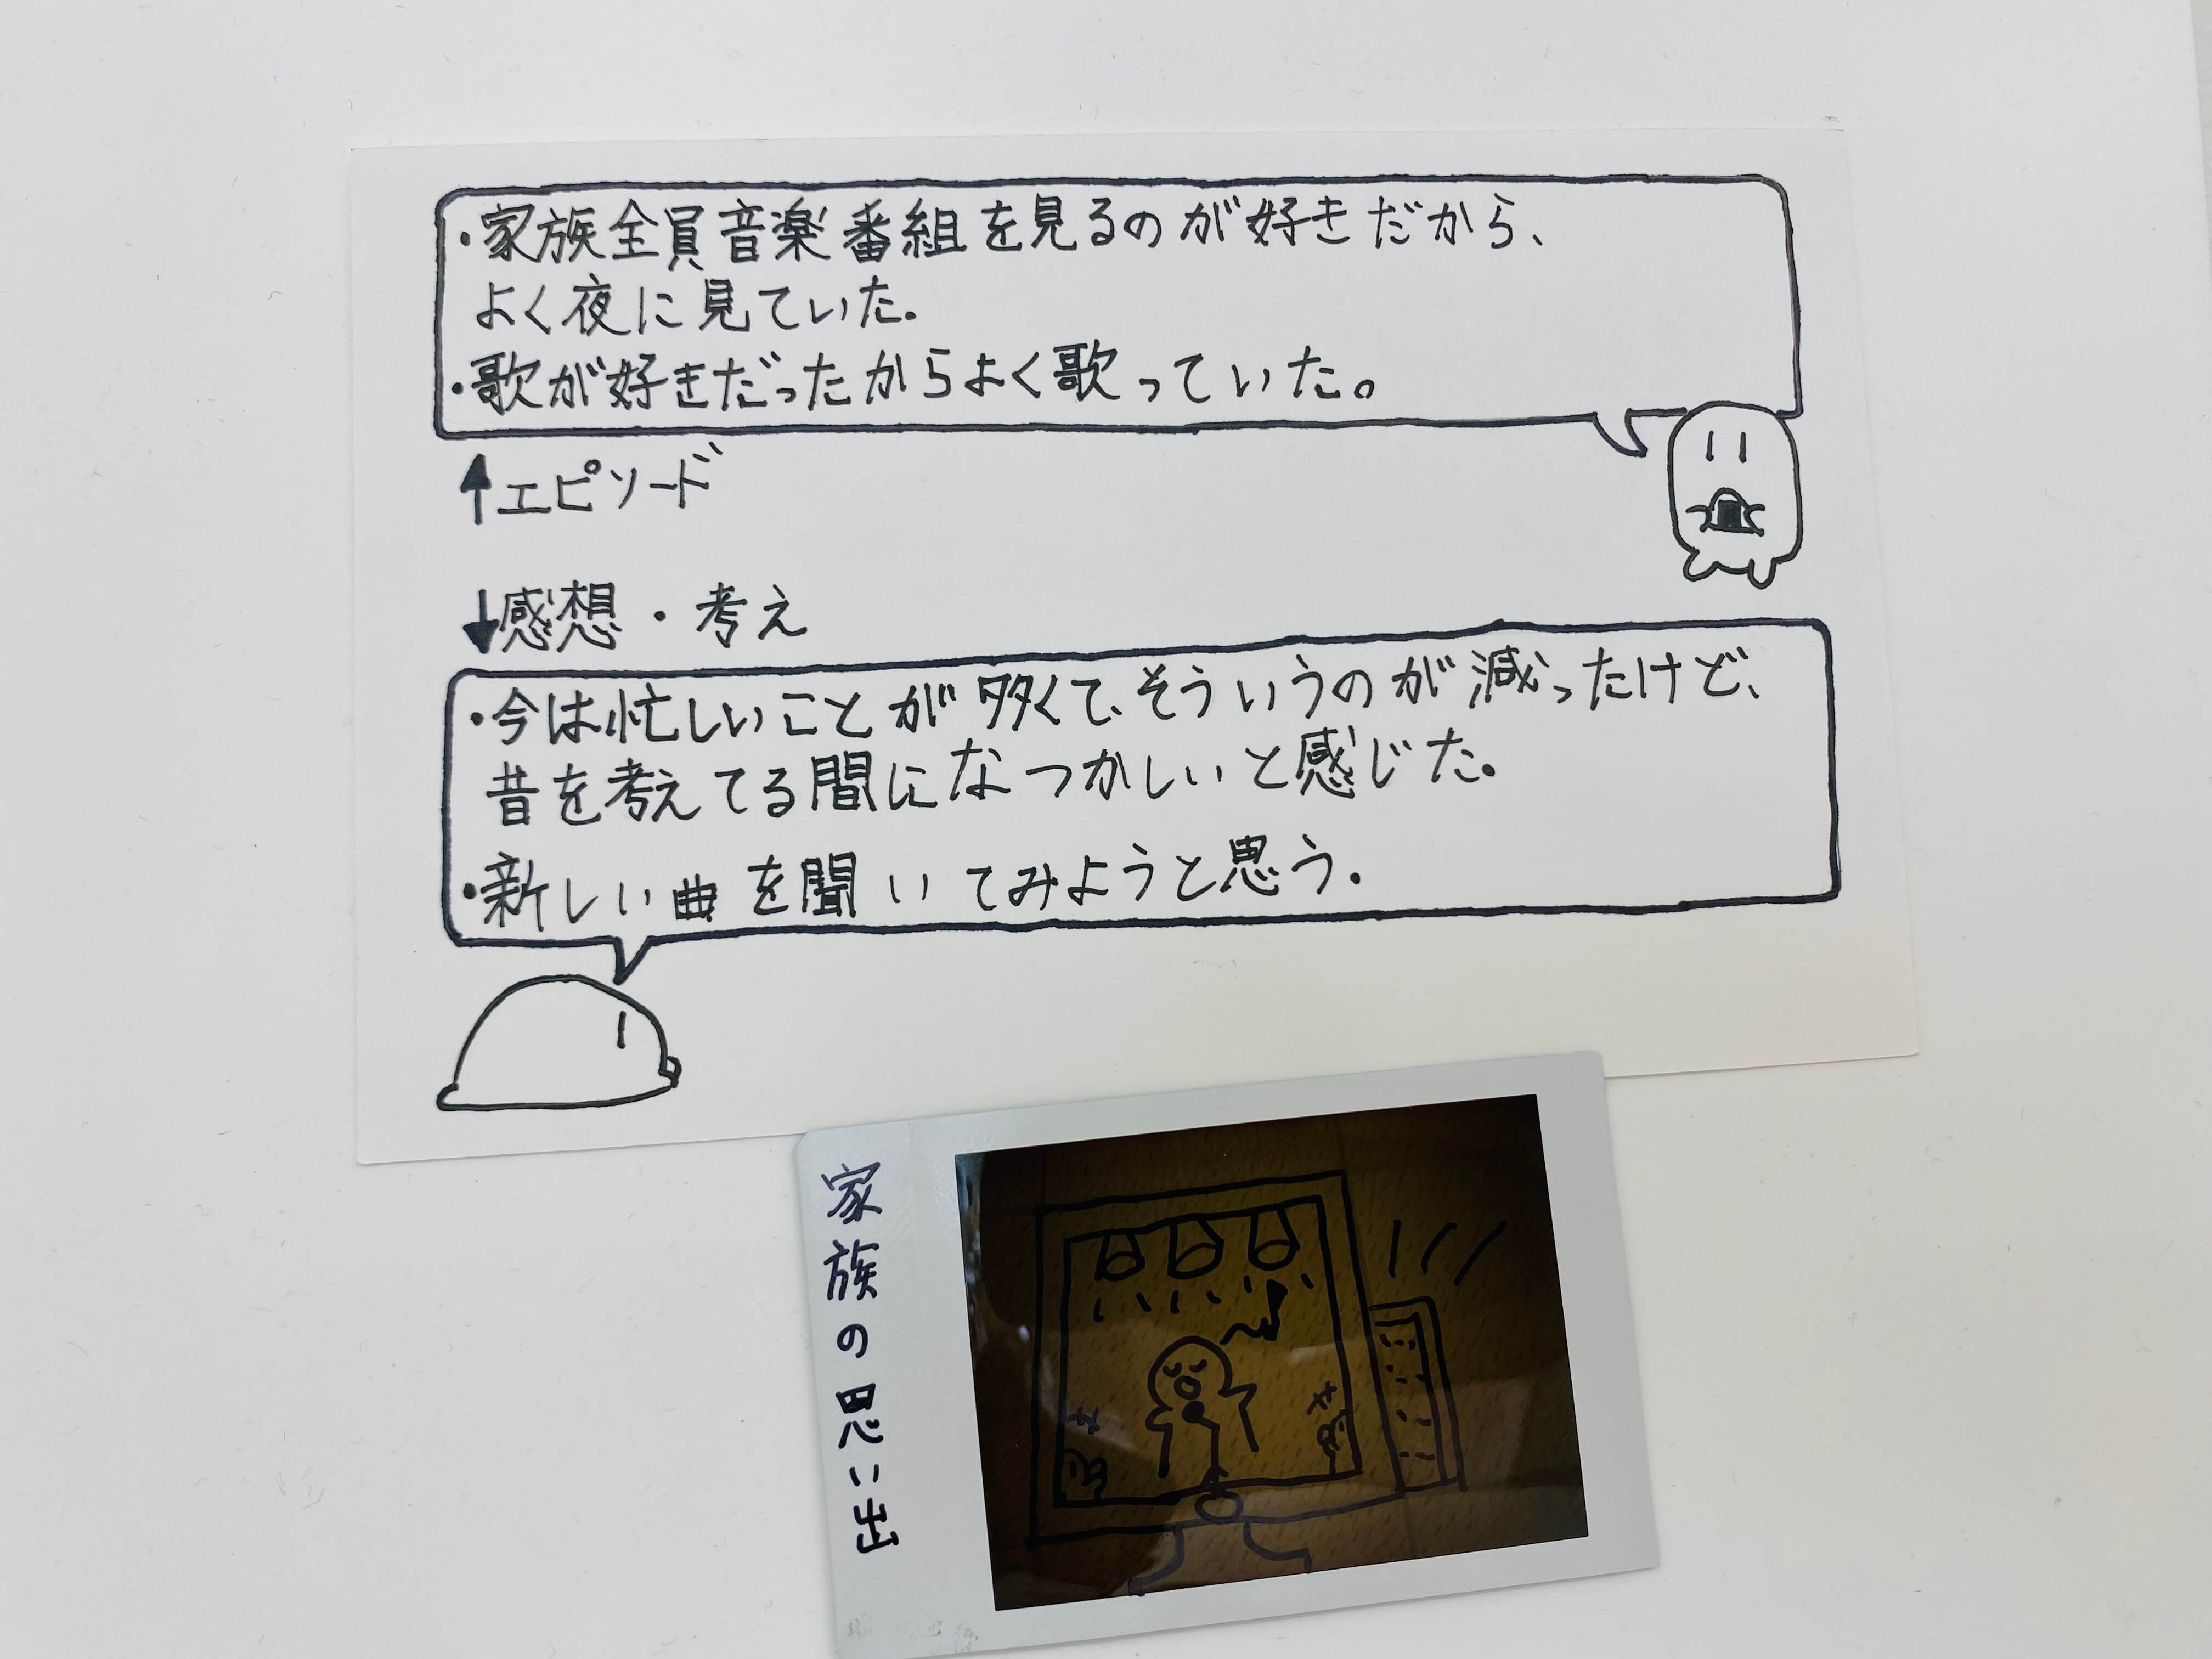 ・家族全員音楽番組を見るのが好きだから、
よく夜に見ていた.
・歌が好きだったからよく歌っていた。
↑エピソード
↓感想・考え
・今は忙しいことが多くて、そういうのが減ったけど、
昔を考えてる間になつかしいと感じた.
・新しい曲を聞いてみようと思う.
家族の思い出